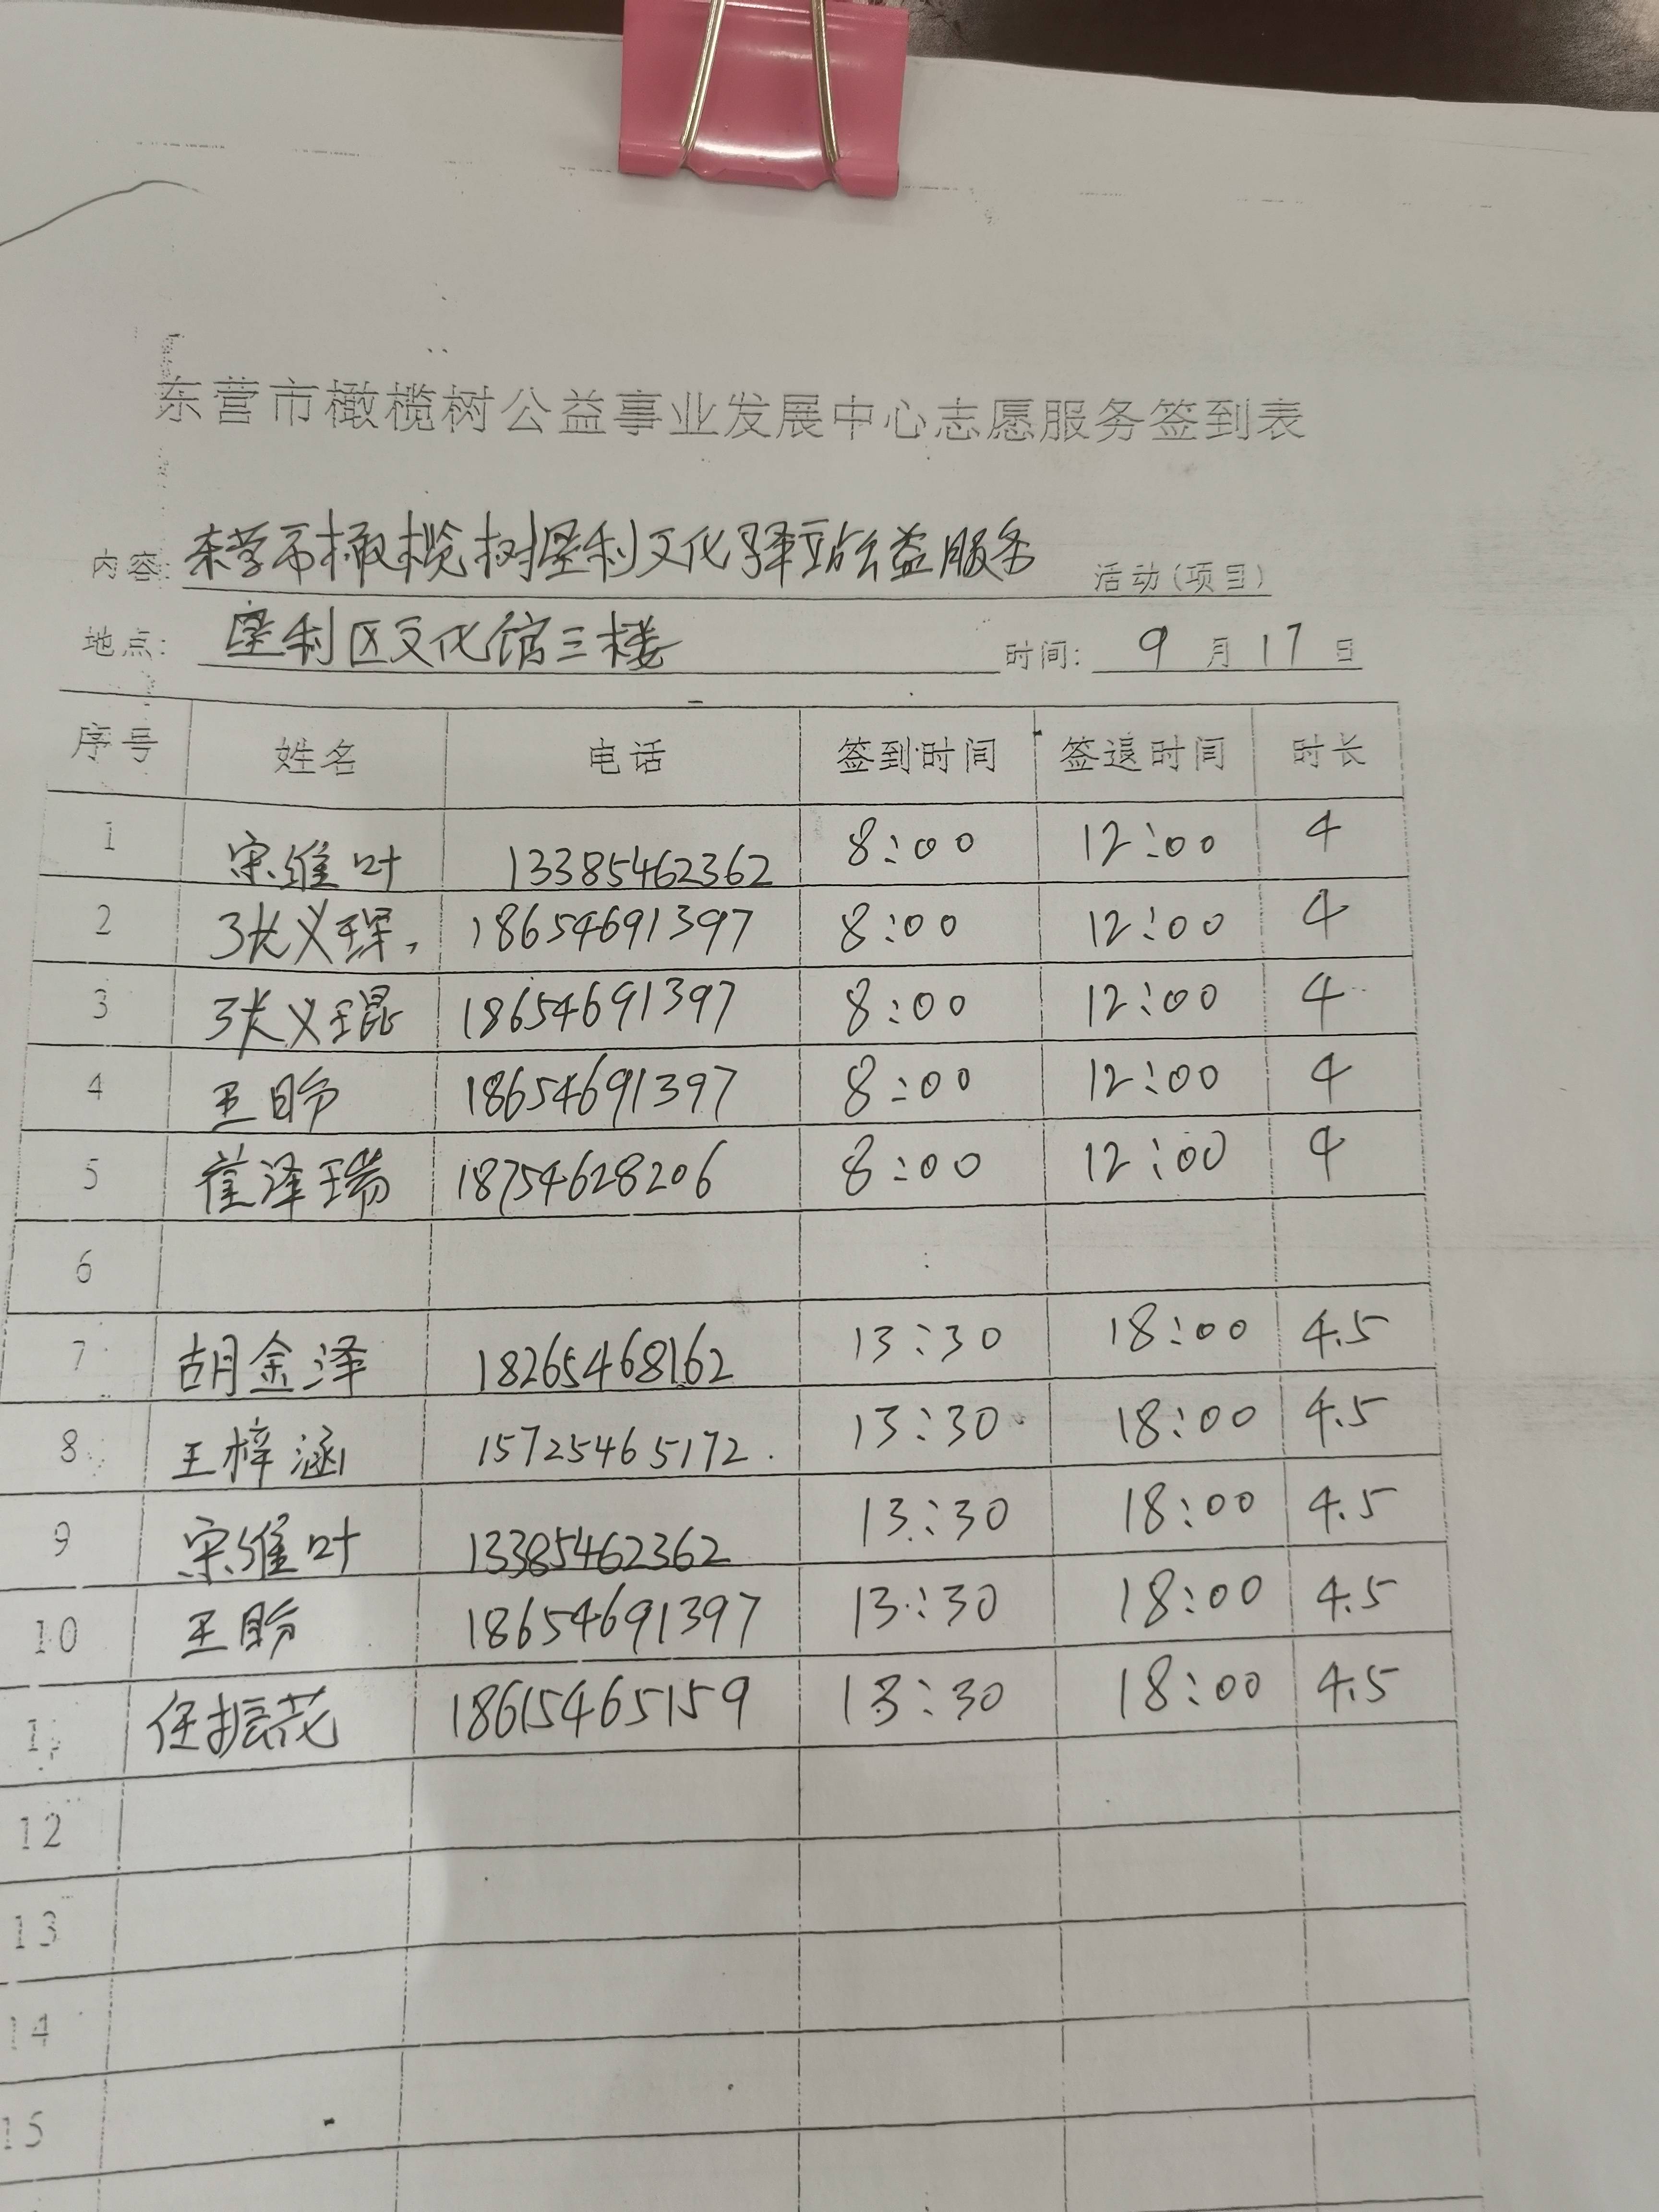 东营市橄榄树公益事业发展中心志愿服务签到表
内容: 东营市橄榄树垦利文化驿站公益服务 活动(项目)
地点: 垦利区文化馆三楼 时间: 9 月 17 日
序号 姓名 电话 签到时间 签退时间 时长
1 宋维叶 13385462362 8:00 12:00 4
2 张义琛 18654691397 8:00 12:00 4
3 张义琨 18654691397 8:00 12:00 4
4 王盼 18654691397 8:00 12:00 4
5 崔泽瑞 18754628206 8:00 12:00 4
6
7 胡金泽 18265468162 13:30 18:00 4.5
8 王梓涵 15725465172. 13:30 18:00 4.5
9 宋维叶 13385462362 13:30 18:00 4.5
10 王盼 18654691397 13:30 18:00 4.5
任振花 18615465159 13:30 18:00 4.5
12
13
14
15